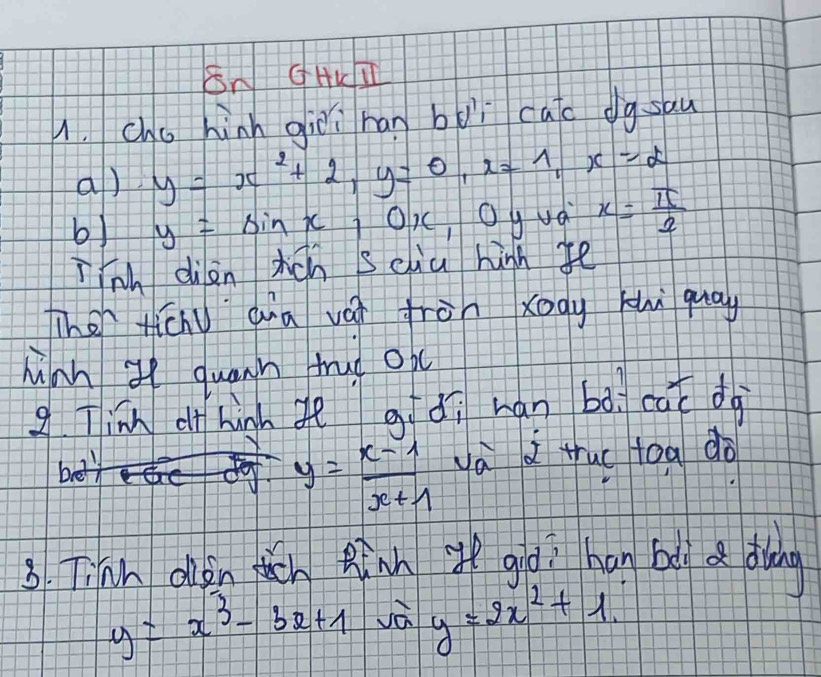 Ôn GHKII
1. Cho hình giới hạn bởi các đg sau
a) y = x² + 2, y = 0, x = 1, x = 2
b) y = sin x, Ox, Oy và x = π/2
Tính diện tích S của hình H
Thể tích V của vật tròn xoay khi quay
hình H quanh trục Ox
2. Tính dt hình H giới hạn bởi các đg
bởi các đg y = (x-1)/(x+1) và 2 trục tọa độ
3. Tính diện tích hình H giới hạn bởi 2 đường
y = x³ - 3x + 1 và y = 2x² + 1.